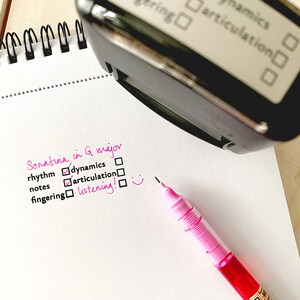 dynamics
fingering articulation
Sonatina in G major
rhythm dynamics
notes articulation
fingering listening! :)